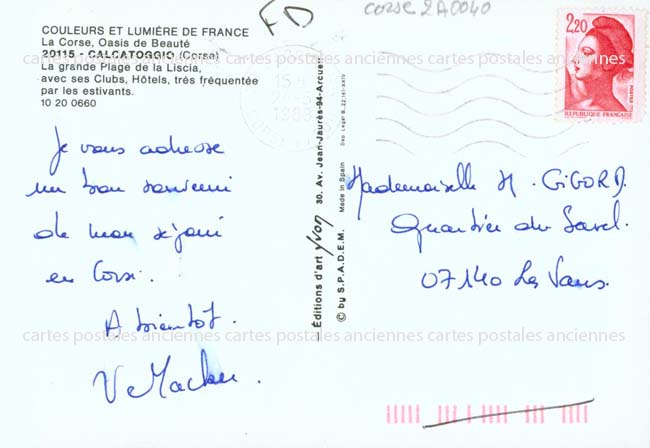 FD
corse 2A0040
COULEURS ET LUMIÈRE DE FRANCE
La Corse, Oasis de Beauté
20115 - CALCATOGGIO (Corse)
La grande Plage de la Liscia,
avec ses Clubs, Hôtels, très fréquentée
par les estivants.
10 20 0660
2,20
POSTES
REPUBLIQUE FRANÇAISE
cartes postales anciennes cartes postales anciennes cartes postales anciennes
Je vous adresse
un bon souvenir
de mon séjour
en Corse.
A bientôt.
V
— Éditions d'art yvon 30. Av. Jean-Jaurès-94-Arcueil
© by S.P.A.D.E.M. Made in Spain
Mademoiselle M. GIGORD.
Quartier du Savel.
07140 Les Vans.
cartes postales anciennes cartes postales anciennes cartes postales anciennes